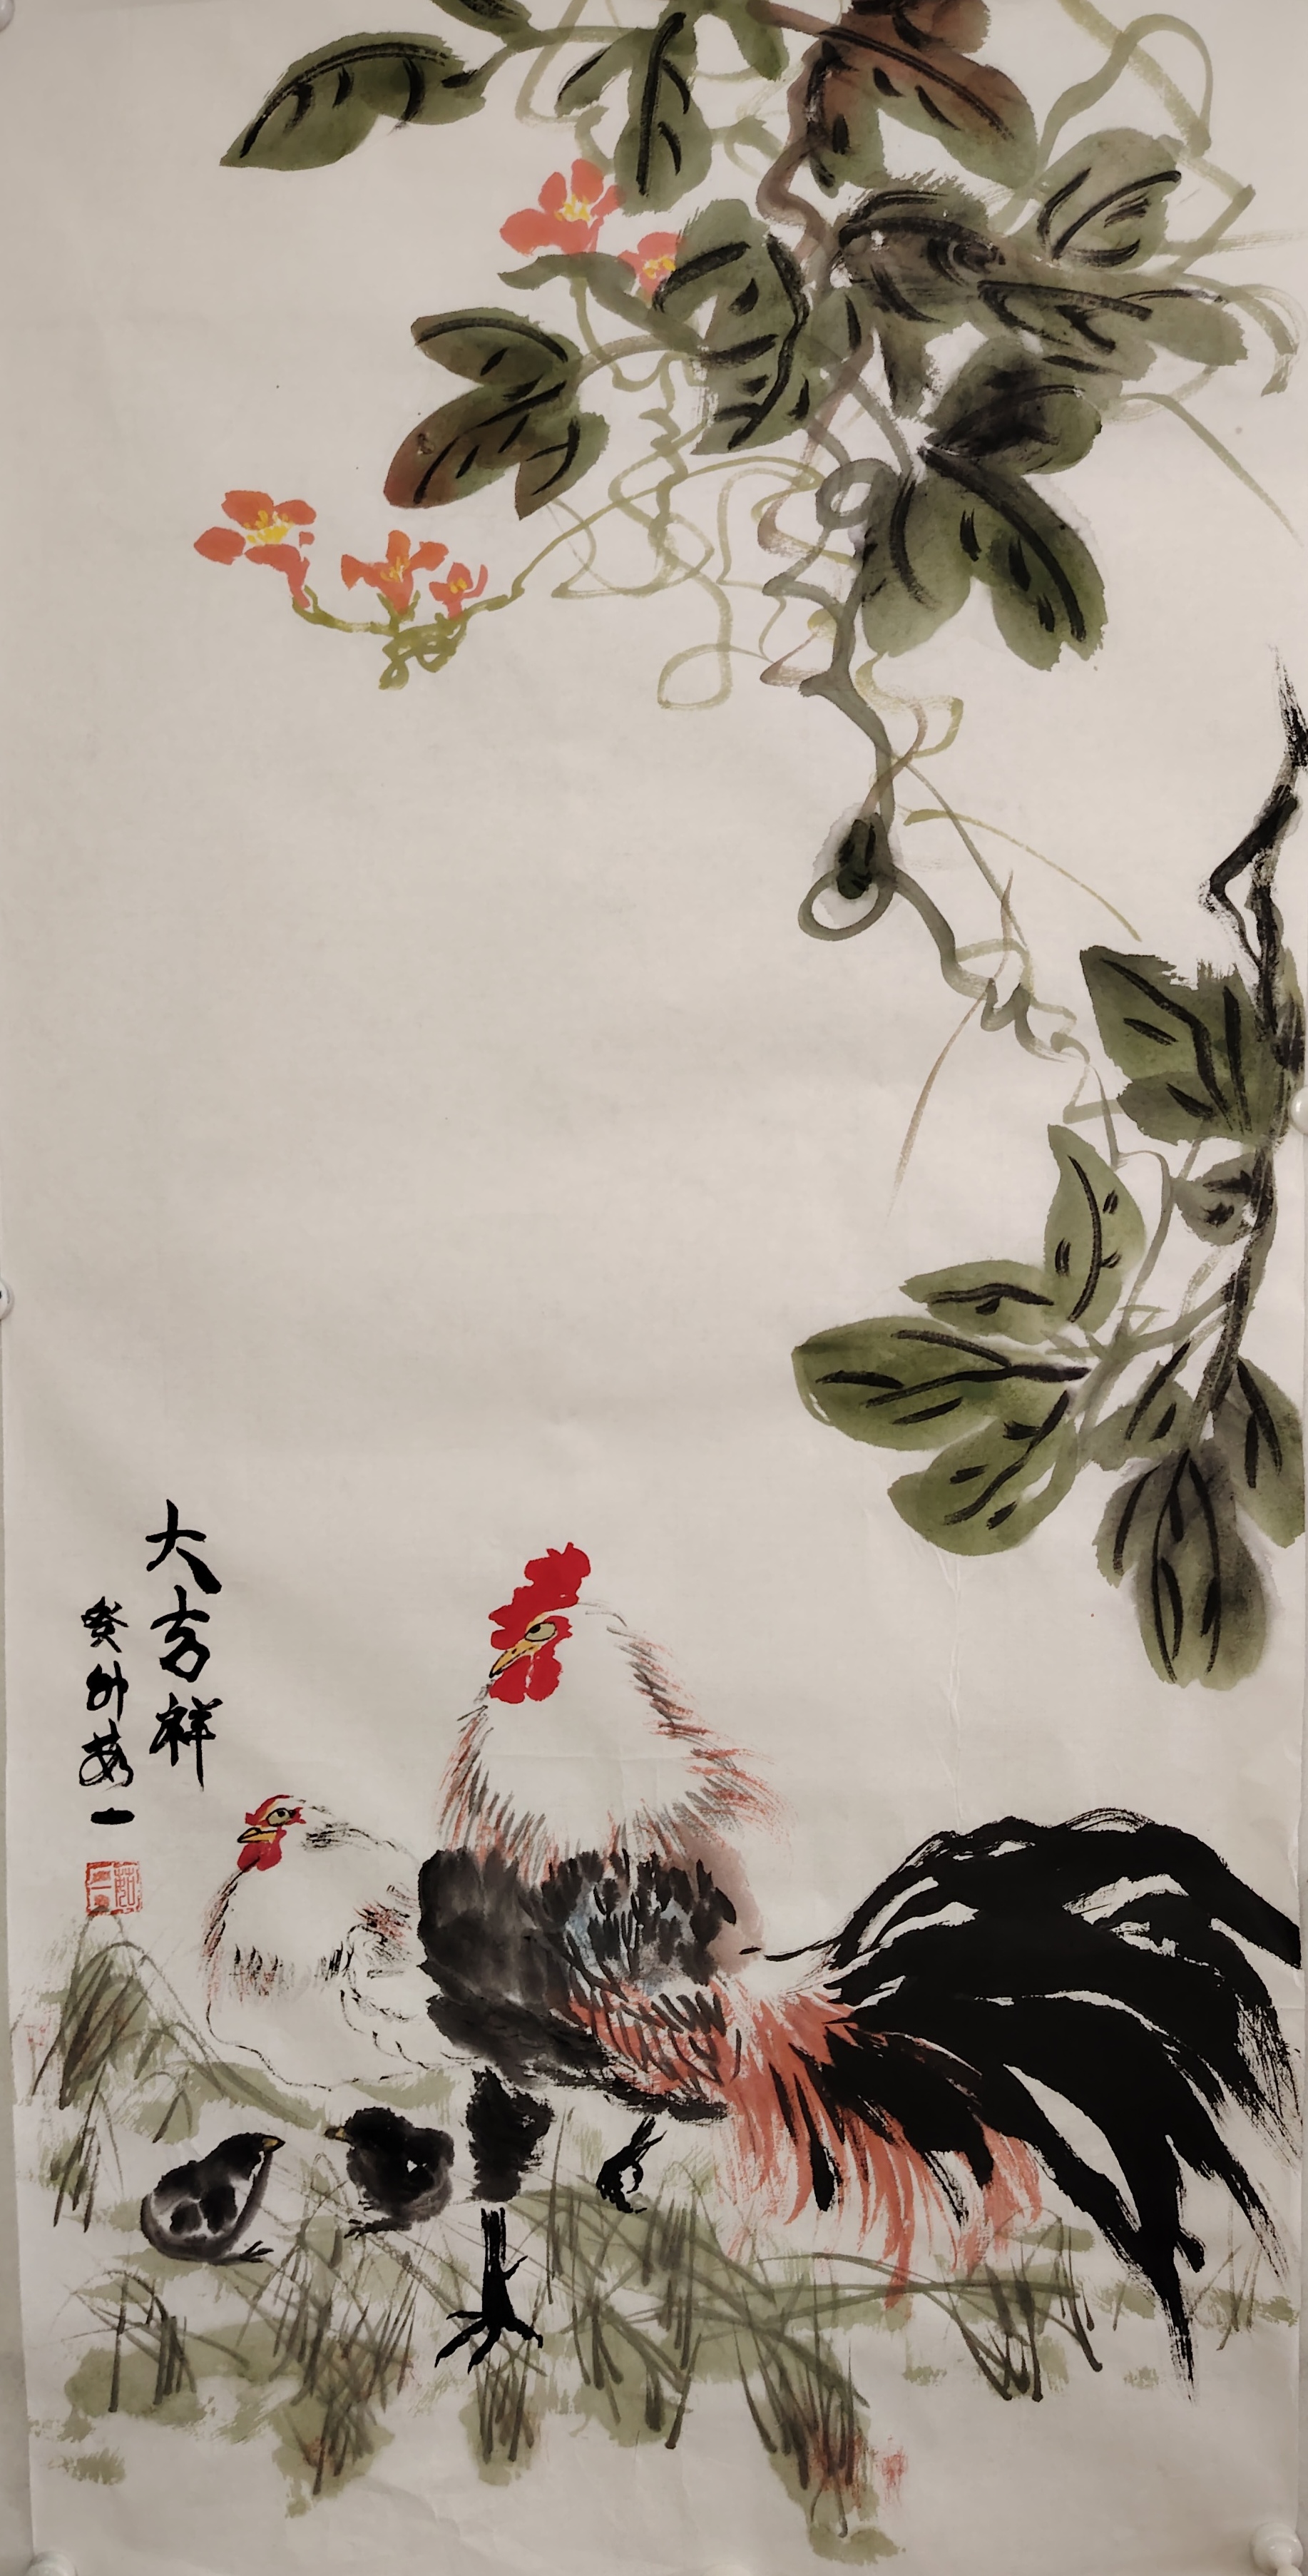 大吉祥
癸卯茹一